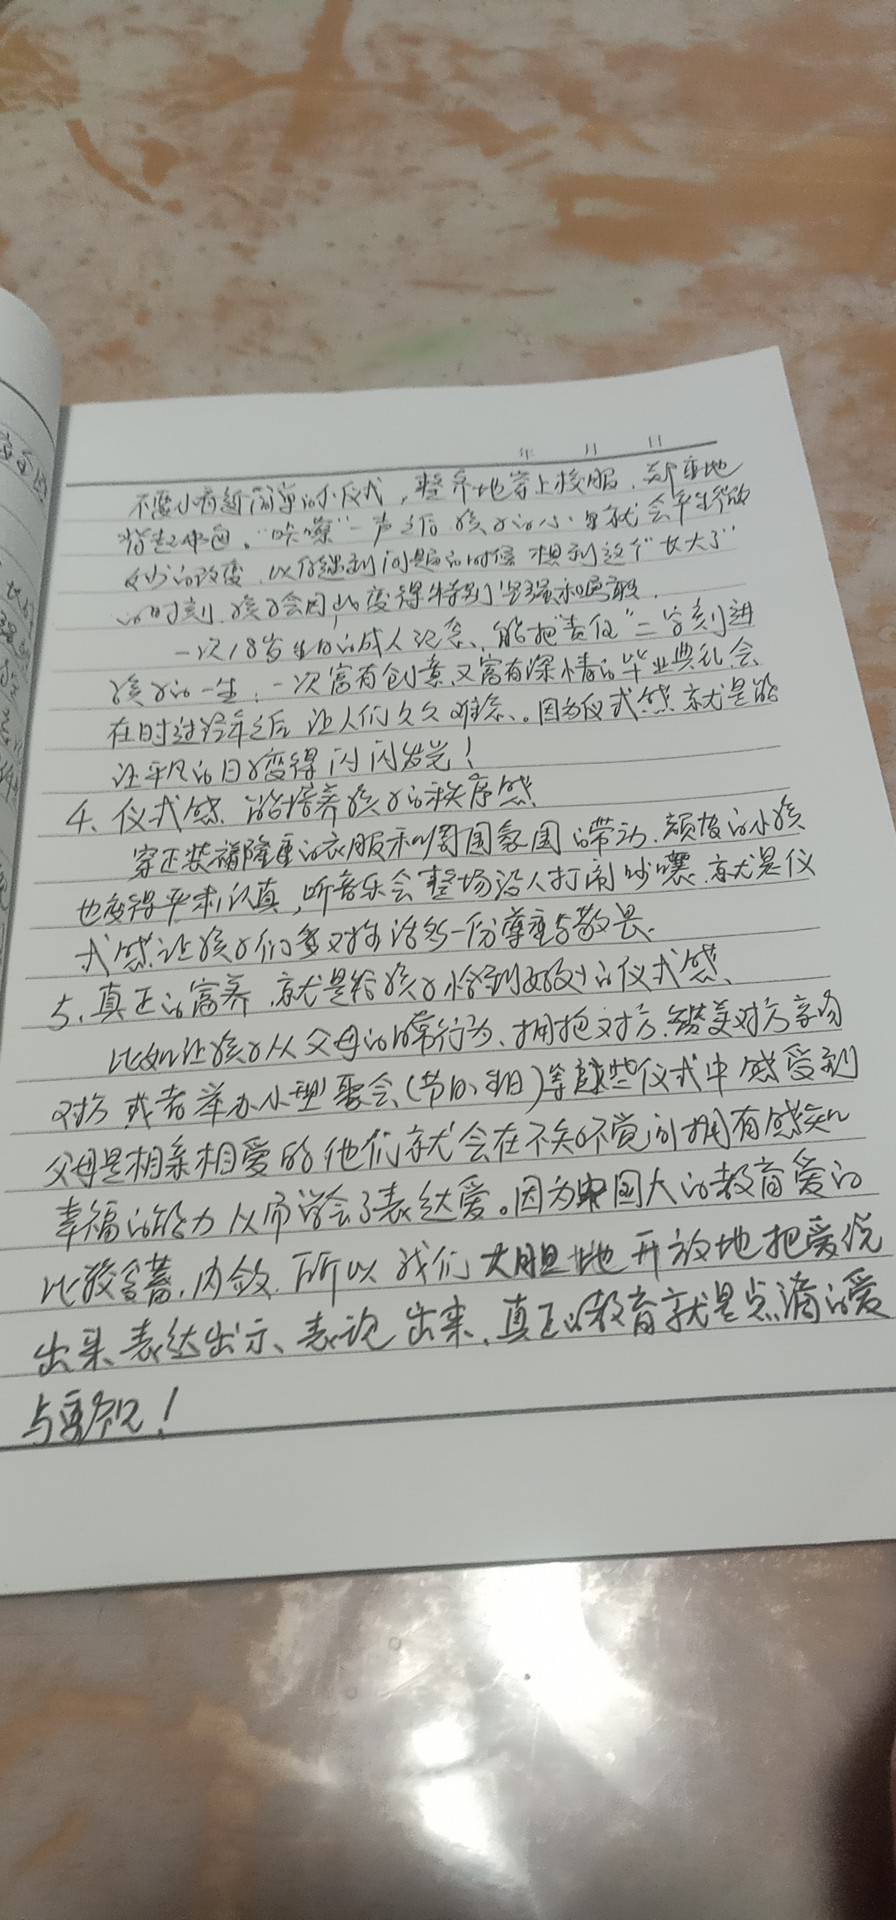 年 月 日
不要小看这简单的小仪式,整齐地穿上校服,郑重地
背起书包,"咔嚓"一声之后孩子的心里就会产生微
妙的改变,以后碰到问题的时候想到这个"长大了"
的时刻,孩子会因此变得特别坚强和勇敢.
一次18岁生日的成人纪念、能把"责任"二字刻进
孩子的一生;一次富有创意又富有深情的毕业典礼会
在时过经年之后让人们久久难忘、。因为仪式感就是能
让平凡的日子变得闪闪发光!
4、仪式感 能培养孩子的秩序感
穿正装隆重的衣服和周围氛围的带动,颓皮的小孩
也变得严肃认真,听音乐会整场没人打闹吵嚷,就是仪
式感让孩子们对生活多一份尊重与敬畏.
5、真正的富养,就是给孩子恰到好处的仪式感、
比如让孩子从父母的日常行为、拥抱对方、赞美对方亲吻
对方 或者举办小型聚会(节日、生日)等这些仪式中感受到
父母是相亲相爱的他们就会在不知不觉间拥有感知
幸福的能力从而学会了表达爱。因为中国人的教育爱的
比较含蓄,内敛.所以我们大胆地开放地把爱说
出来 表达出示、表说出来,真正的教育就是点滴的爱
与重视!